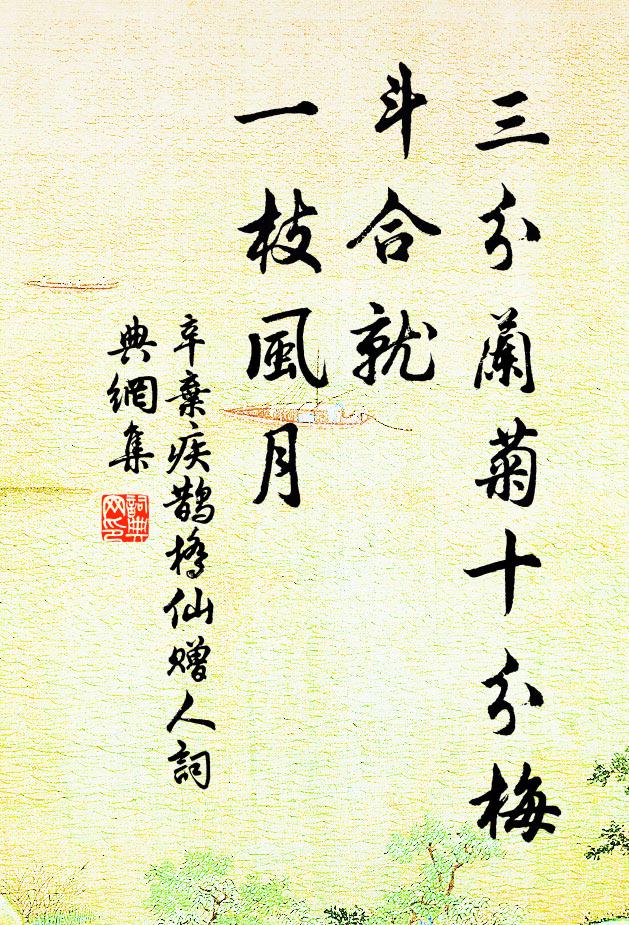 三分蘭菊十分梅
斗合就
一枝風月
辛棄疾鵲橋仙贈人詞
典網集
詞典
网印